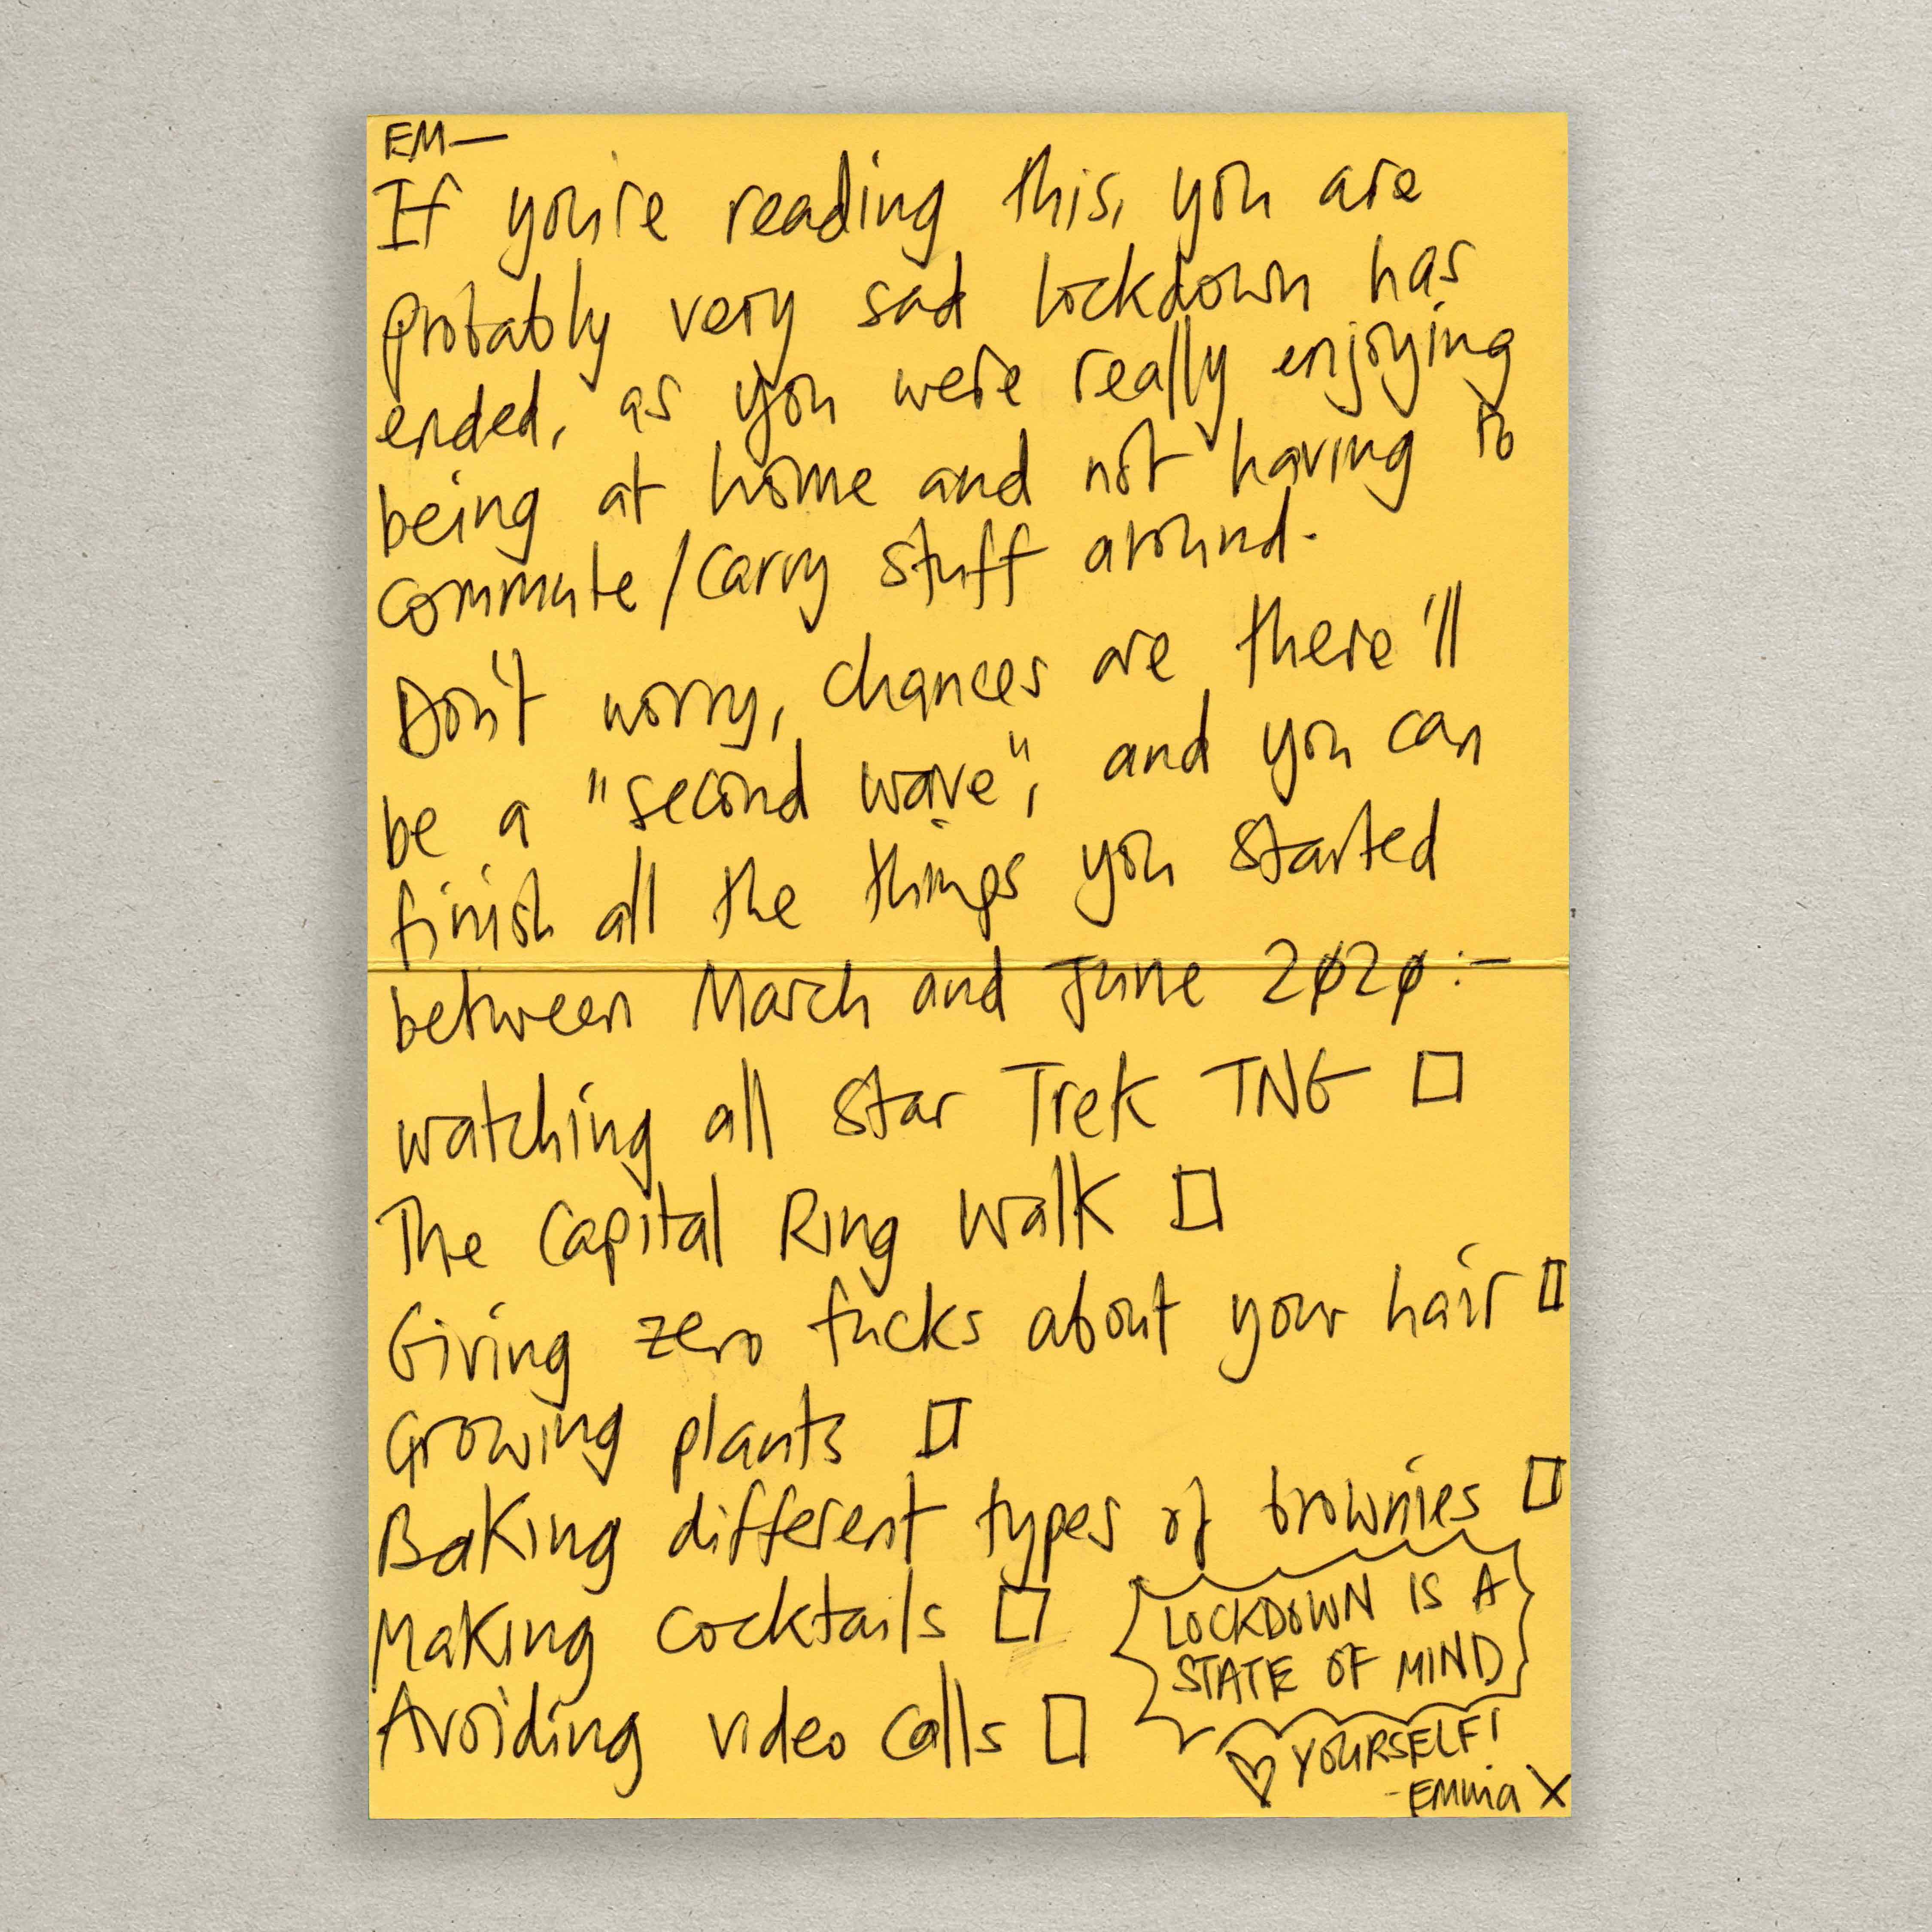 EM—
If you're reading this, you are
probably very sad lockdown has
ended, as you were really enjoying
being at home and not having to
commute/carry stuff around.
Don't worry, chances are there'll
be a "second wave", and you can
finish all the things you started
between March and June 2020:-
watching all Star Trek TNG □
The Capital Ring Walk □
Giving zero fucks about your hair □
Growing plants □
Baking different types of brownies □
Making cocktails □
Avoiding video calls □
LOCKDOWN IS A
STATE OF MIND
♡ YOURSELF!
-EMMA X